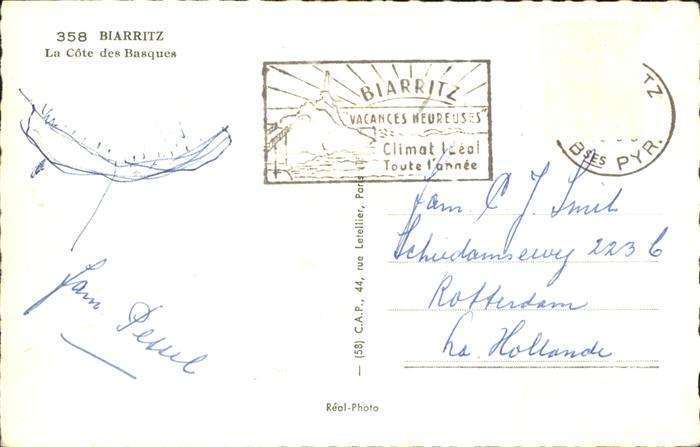 358 BIARRITZ
La Côte des Basques
BIARRITZ
"VACANCES HEUREUSES"
Climat Idéal
Toute l'année
TZ
BSES PYR.
Fam. C J. Smit
Schiedamseweg 223 b
Rotterdam
La Hollande
Fam.
— (58) C.A.P., 44, rue Letellier, Paris
Réal-Photo